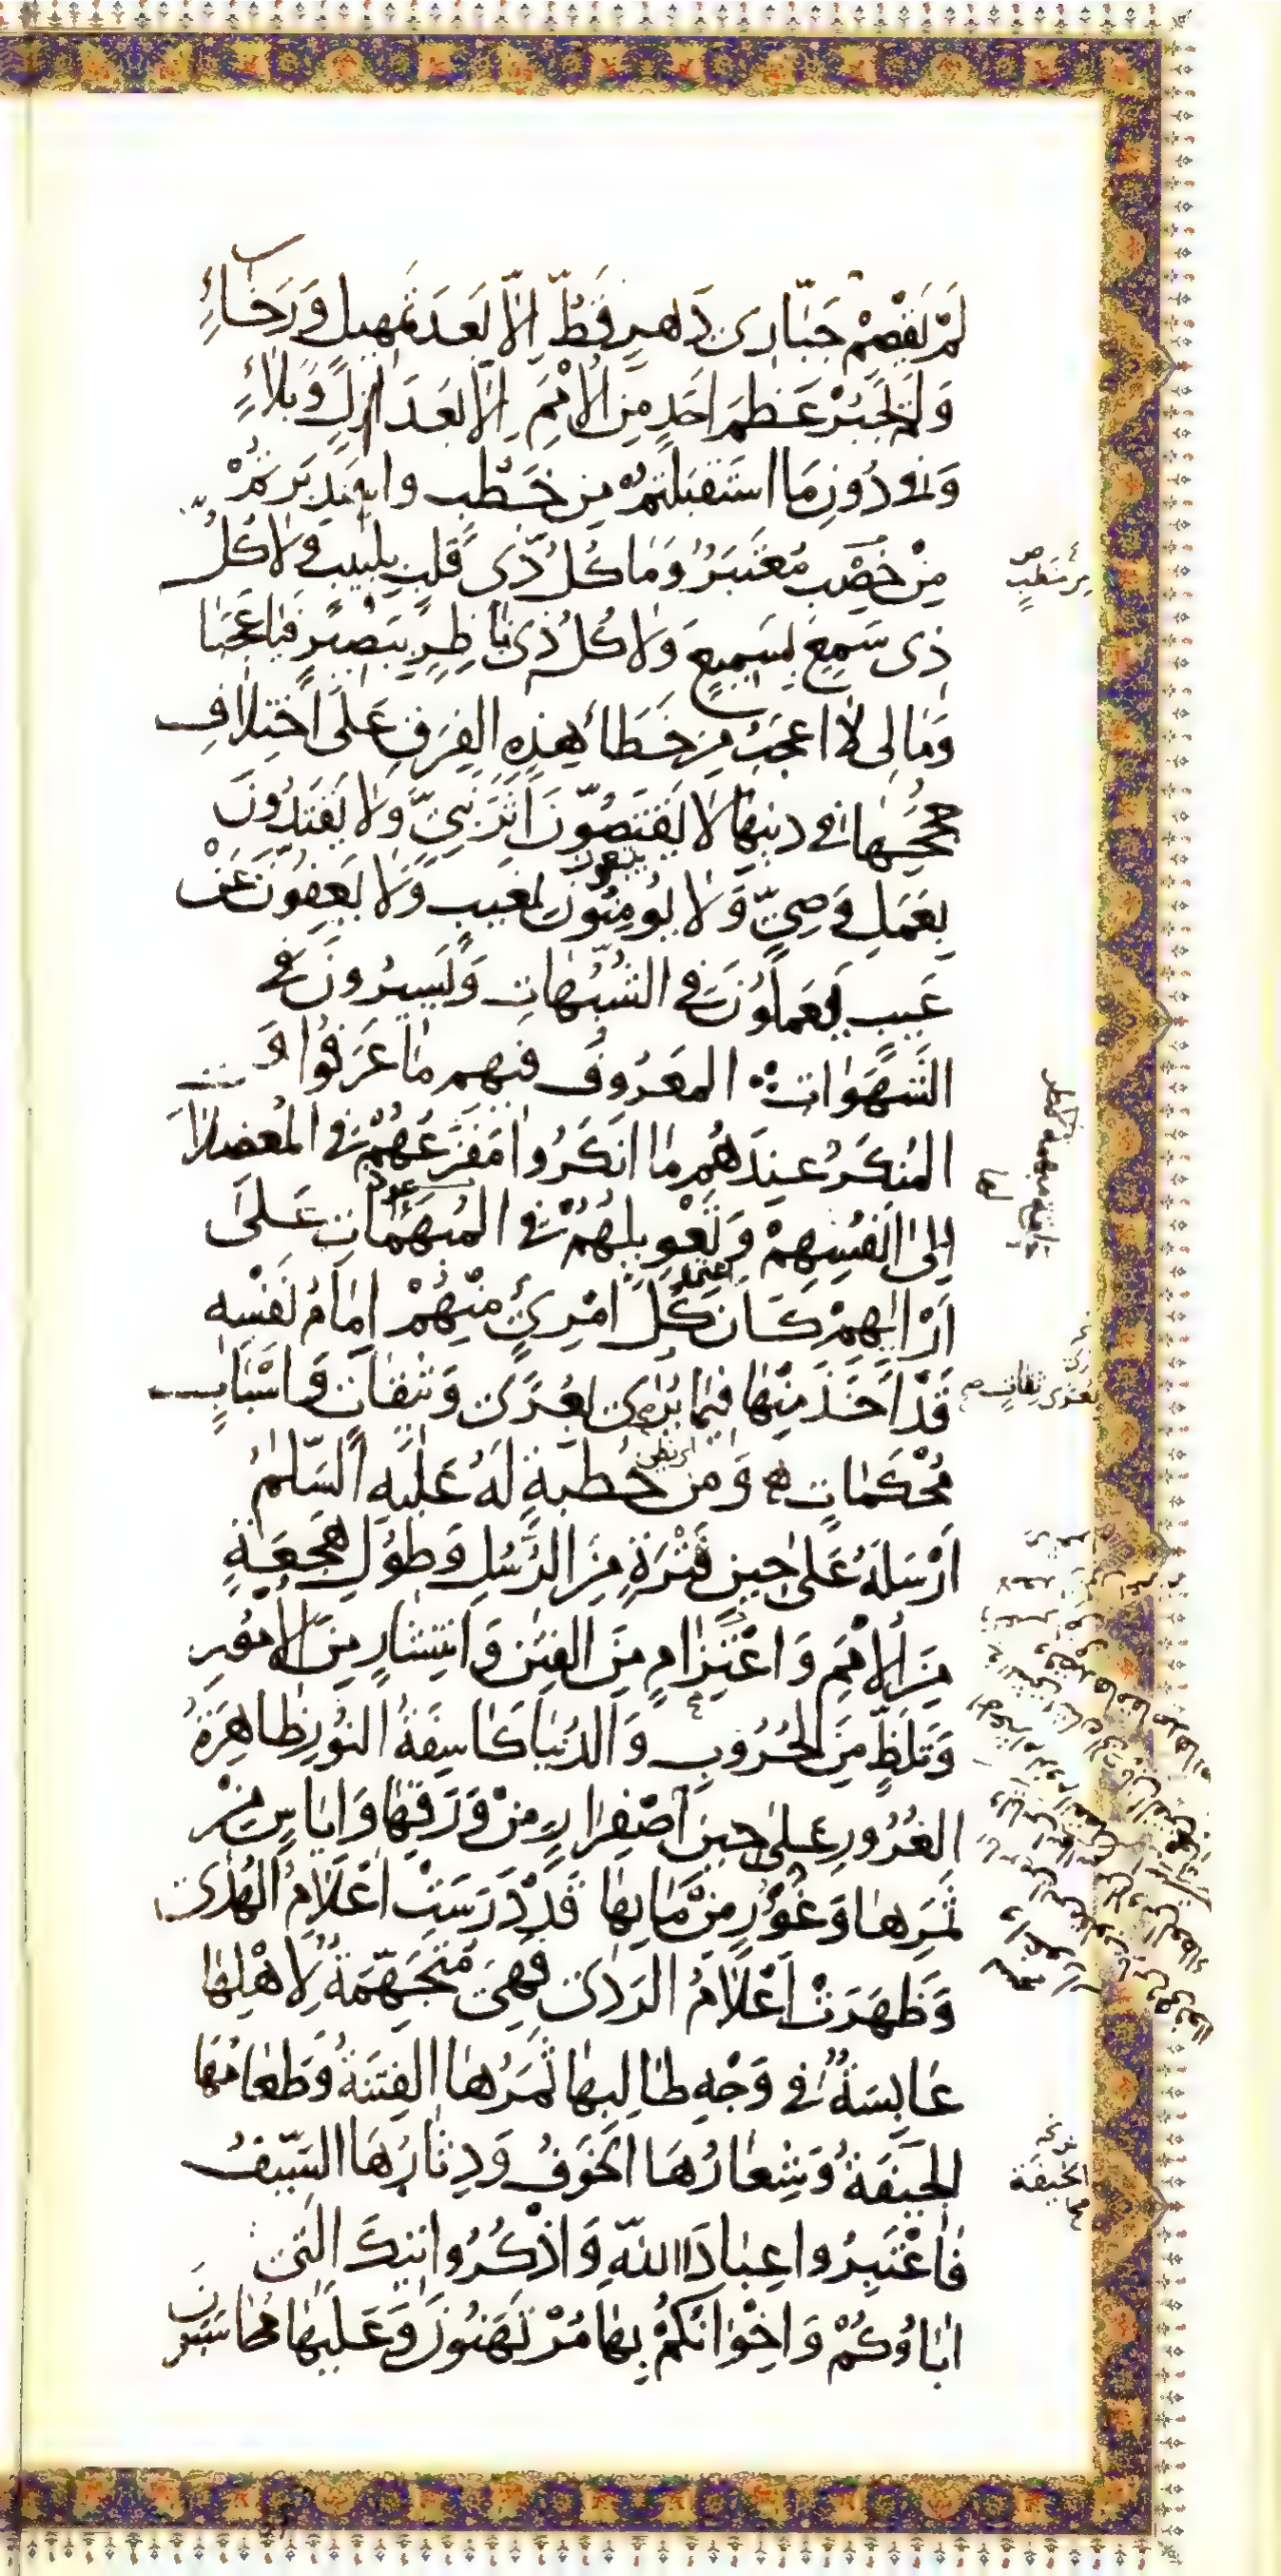 لَمْ يَقْصِمْ جَبّٰارِى دَهرٍ قَطُّ اِلاّٰ بَعدَ تَمهيلٍ وَرَخٰاءٍ
وَلَمْ يَجْبُرْ عَظمَ اَحَدٍ مِنَ الاُمَمِ اِلاّٰ بَعدَ اَزلٍ وَبَلاٰءٍ
وَفى دُونِ مَا اسْتَقبَلْتُمْ مِن خَطْبٍ وَاسْتَدبَرْتُمْ
مِنْ خَصْبٍ مُعْتَبَرٌ وَمٰا كُلُّ ذى قَلبٍ بِلَبيبٍ وَلاٰ كُلُّ
ذى سَمعٍ بِسَميعٍ وَلاٰ كُلُّ ذى نٰاظِرٍ بِبَصيرٍ فَيٰا عَجَبٰا
وَمٰا لِى لاٰ اَعجَبُ مِن خَطَاءِ هٰذِهِ الفِرَقِ عَلَى اختِلاٰفِ
حُجَجِهٰا فى دينِهٰا لاٰ يَقْتَصُّونَ اَثَرَ نَبِىٍّ وَلاٰ يَقتَدُونَ
بِعَمَلِ وَصِىٍّ وَلاٰ يُومِنُونَ بِغَيبٍ وَلاٰ يَعِفُّونَ عَنْ
عَيبٍ يَعمَلُونَ فى الشُّبُهٰاتِ وَيَسيرُونَ فى
الشَّهَوٰاتِ المَعرُوفُ فيهِم مٰا عَرَفُوا وَ
المُنكَرُ عِندَهُم مٰا اَنكَرُوا مَفزَعُهُمْ فى المُعضِلاٰتِ
اِلىٰ اَنفُسِهِمْ وَتَعْويلُهُمْ فى المُبهَمٰاتِ عَلىٰ
آرٰائِهِمْ كَاَنَّ كُلَّ امْرِئٍ مِنْهُمْ اِمٰامُ نَفْسِه
قَدْ اَخَذَ مِنْهٰا فيمٰا يَرىٰ بِعُرًى وَثيقٰاتٍ وَاَسْبٰابٍ
مُحْكَمٰاتٍ وَمِن خُطبَةٍ لَهُ عَلَيهِ السَّلٰمُ
اَرْسَلَهُ عَلىٰ حينِ فَتْرَةٍ مِنَ الرُّسُلِ وَطُولِ هَجعَةٍ
مِنَ الاُمَمِ وَاعْتِزٰامٍ مِنَ الفِتَنِ وَانتِشٰارٍ مِنَ الاُمُورِ
وَتَلَظٍّ مِنَ الحُرُوبِ وَالدُّنيٰا كٰاسِفَةُ النُّورِ ظٰاهِرَةُ
الغُرُورِ عَلىٰ حينِ اصْفِرٰارٍ مِنْ وَرَقِهٰا وَاِيٰاسٍ مِنْ
ثَمَرِهٰا وَغُؤُرٍ مِنْ مٰائِهٰا قَدْ دَرَسَتْ اَعْلاٰمُ الهُدٰى
وَظَهَرَتْ اَعْلاٰمُ الرَّدٰى فَهِىَ مُتَجَهِّمَةٌ لِاَهْلِهٰا
عَابِسَةٌ فى وَجْهِ طٰالِبِهٰا ثَمَرُهٰا الفِتنَةُ وَطَعٰامُهٰا
الجيفَةُ وَشِعٰارُهَا الخَوفُ وَدِثٰارُهَا السَّيفُ
فَاعْتَبِرُوا عِبٰادَ اللّٰهِ وَاذْكُرُوا تيكَ الَّتى
اٰبٰاؤُكُمْ وَاِخْوٰانُكُمْ بِهٰا مُرْتَهَنُونَ وَعَلَيْهٰا مُحٰاسَبُونَ
الخيفَة